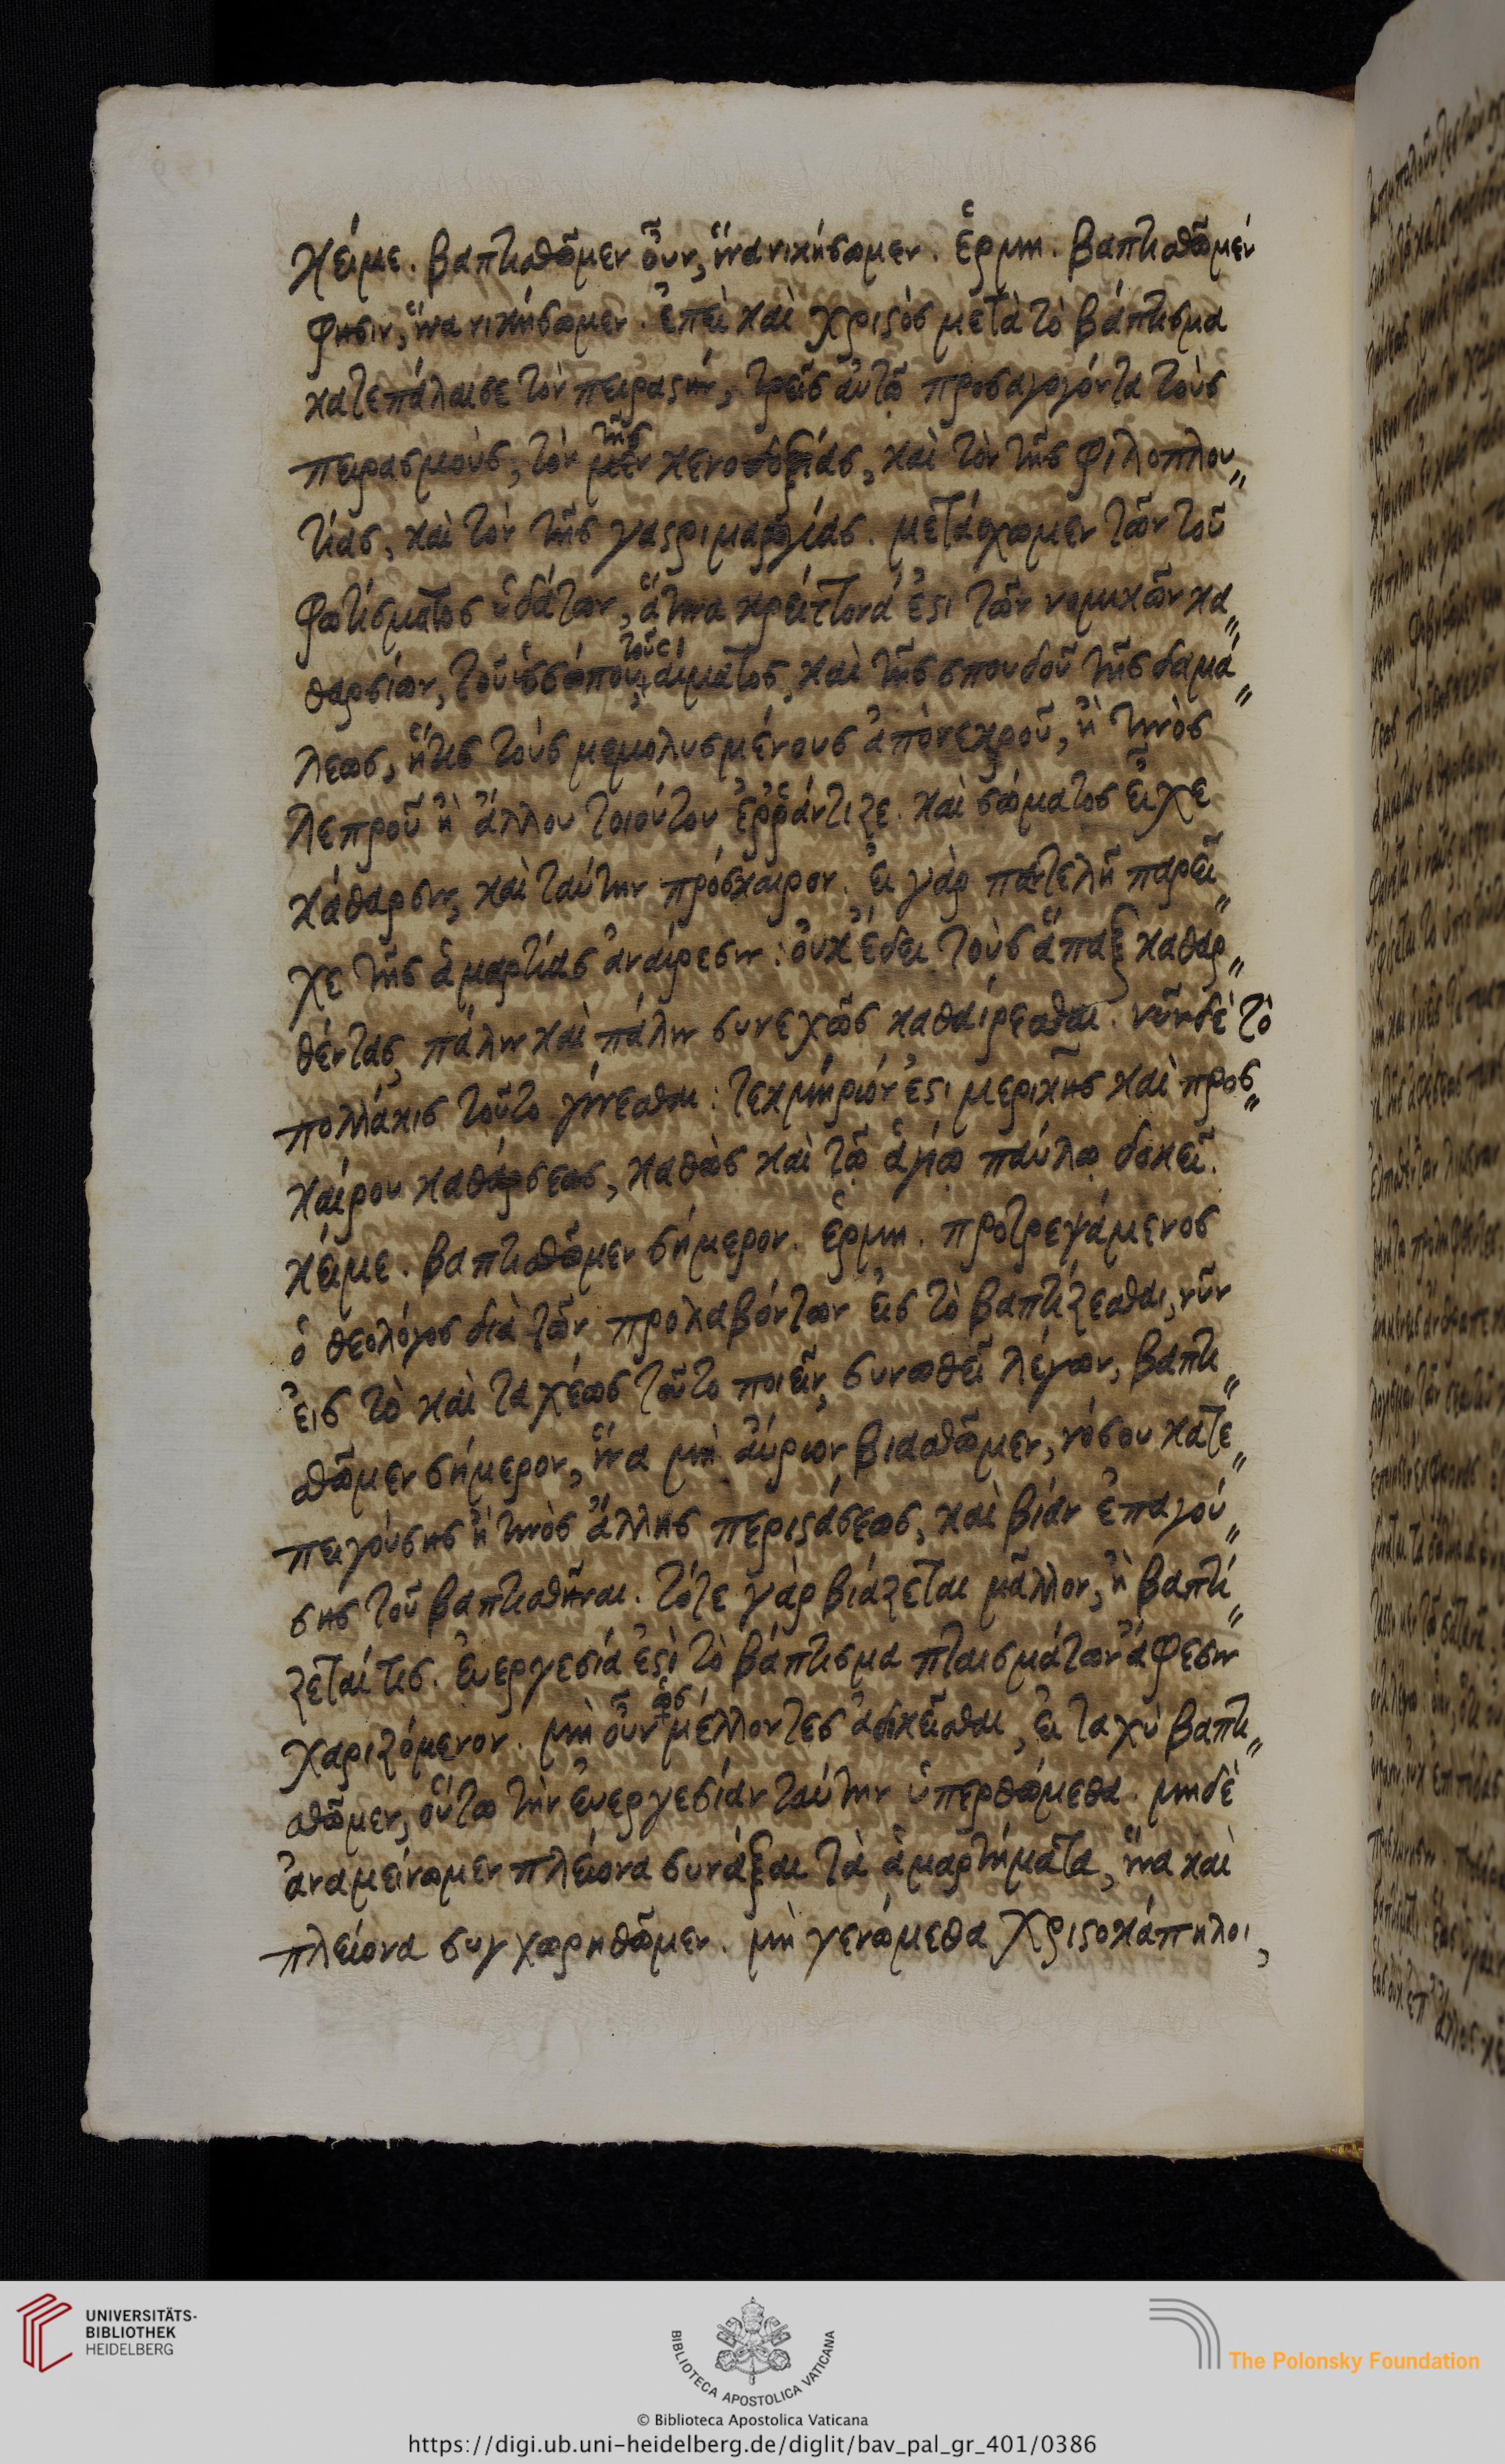 κείμε. βαπτισθῶμεν οὖν, ἵνα νικήσωμεν. ἑρμη. βαπτισθῶμέν
φησιν, ἵνα νικήσωμεν. ἐπεὶ καὶ χριστὸς μετὰ τὸ βάπτισμα
κατεπάλαισε τὸν πειραστὴν, τρεῖς αὐτῶ προσαγαγόντα τοὺς
πειρασμοὺς, τὸν μὲν τῆς κενοδοξίας, καὶ τὸν τῆς φιλοπλου„
τίας, καὶ τὸν τῆς γαστριμαργίας. μετάσχωμεν τῶν τοῦ
φωτίσματος ὑδάτων, ἅτινα κρείττονά ἐστι τῶν νομικῶν κα„
θαρσίων, τοῦ ὑσσώπου, τοῦ αἵματος, καὶ τῆς σποδοῦ τῆς δαμά„
λεως, ἥτις τοὺς μεμολυσμένους ἀπὸ νεκροῦ, ἢ τινὸς
λεπροῦ ἢ ἄλλου τοιούτου ἐρράντιζε. καὶ σώματος εἶχε
κάθαρσιν, καὶ ταύτην πρόσκαιρον. εἰ γὰρ παντελῆ παρεῖ„
χε τῆς ἁμαρτίας ἀναίρεσιν: οὐκ ἔδει τοὺς ἅπαξ καθαρ„
θέντας, πάλιν καὶ πάλιν συνεχῶς καθαίρεσθαι. νῦν δὲ τὸ
πολλάκις τοῦτο γίνεσθαι: τεκμήριόν ἐστι μερικῆς καὶ προς„
καίρου καθάρσεως, καθὼς καὶ τῶ ἁγίω παύλω δοκεῖ.
κείμε. βαπτισθῶμεν σήμερον. ἑρμη. προτρεψάμενος
ὁ θεολόγος διὰ τῶν προλαβόντων εἰς τὸ βαπτίζεσθαι, νῦν
εἰς τὸ καὶ ταχέως τοῦτο ποιεῖν, συνωθεῖ λέγων, βαπτι„
σθῶμεν σήμερον, ἵνα μὴ αὔριον βιασθῶμεν, νόσου κατε„
πειγούσης ἢ τινὸς ἄλλης περιστάσεως, καὶ βίαν ἐπαγού„
σης τοῦ βαπτισθῆναι. τότε γὰρ βιάζεται μᾶλλον, ἢ βαπτί„
ζεταί τις. εὐεργεσία ἐστὶ τὸ βάπτισμα πταισμάτων ἄφεσιν
χαριζόμενον. μὴ οὖν ὡς μέλλοντες ἀδικεῖσθαι, εἰ ταχὺ βαπτι„
σθῶμεν, οὕτω τὴν εὐεργεσίαν ταύτην ὑπερθώμεθα. μηδὲ
ἀναμείνωμεν πλείονα συνάξαι τὰ ἁμαρτήματα, ἵνα καὶ
πλείονα συγχωρηθῶμεν. μὴ γενώμεθα χριστοκάπηλοι,
UNIVERSITÄTS-
BIBLIOTHEK
HEIDELBERG
BIBLIOTECA APOSTOLICA VATICANA
The Polonsky Foundation
© Biblioteca Apostolica Vaticana
https://digi.ub.uni-heidelberg.de/diglit/bav_pal_gr_401/0386